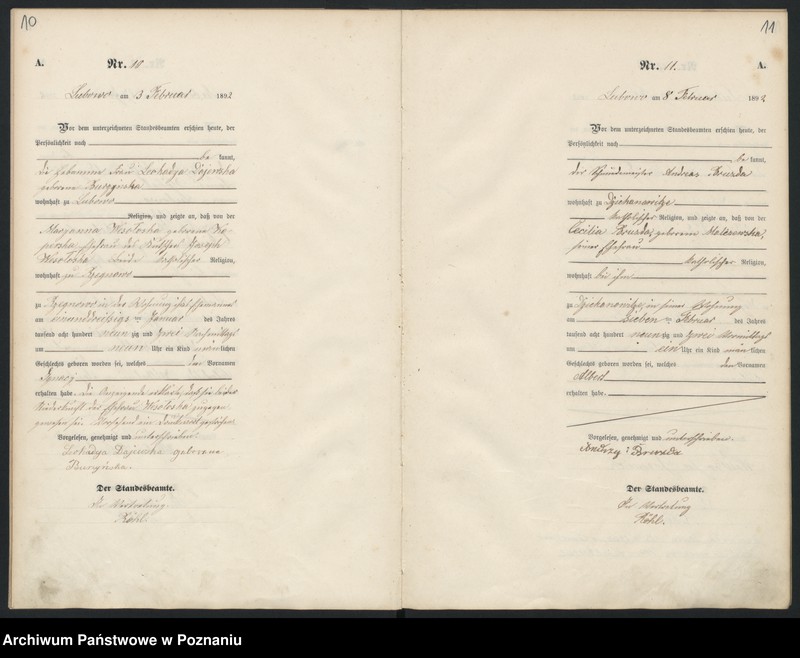 10
A. Nr. 10
Lubowo am 3 Februar 1892
Vor dem unterzeichneten Standesbeamten erschien heute, der
Persönlichkeit nach
be kannt,
die Hebamme Frau Leokadya Dajewska
geborene Burzyńska
wohnhaft zu Lubowo
Religion, und zeigte an, daß von der
Maryanna Wesołoska geborene
Ehefrau des Joseph
Wesołoska beide katholischer Religion,
wohnhaft zu
zu in der Wohnung ihres Ehemannes
am einunddreißigs ten Januar des Jahres
tausend acht hundert neun zig und zwei Nachmittags
um neun Uhr ein Kind männ lichen
Geschlechts geboren worden sei, welches den Vornamen
Ignacy
erhalten habe. Die Anzeigende erklärte, daß sie bei der
Niederkunft der Ehefrau Wesołoska zugegen
gewesen sei.
Vorgelesen, genehmigt und unterschrieben
Leokadya Dajewska geborene
Burzyńska.
Der Standesbeamte.
In Vertretung
Röhl.
11
Nr. 11. A.
Lubowo am 8 Februar 1892
Vor dem unterzeichneten Standesbeamten erschien heute, der
Persönlichkeit nach
be kannt,
der Schmiedemeister Andreas Bruzda
wohnhaft zu Dziekanowitze
katholischer Religion, und zeigte an, daß von der
Cecilia Bruzda, geborene
seiner Ehefrau
katholischer Religion,
wohnhaft bei ihm
zu Dziekanowitze, in seiner Wohnung
am sieben ten Februar des Jahres
tausend acht hundert neun zig und zwei Vormittags
um ein Uhr ein Kind männ lichen
Geschlechts geboren worden sei, welches den Vornamen
Albert
erhalten habe.
Vorgelesen, genehmigt und unterschrieben.
Andrzy Bruzda
Der Standesbeamte.
In Vertretung
Röhl.
Archiwum Państwowe w Poznaniu